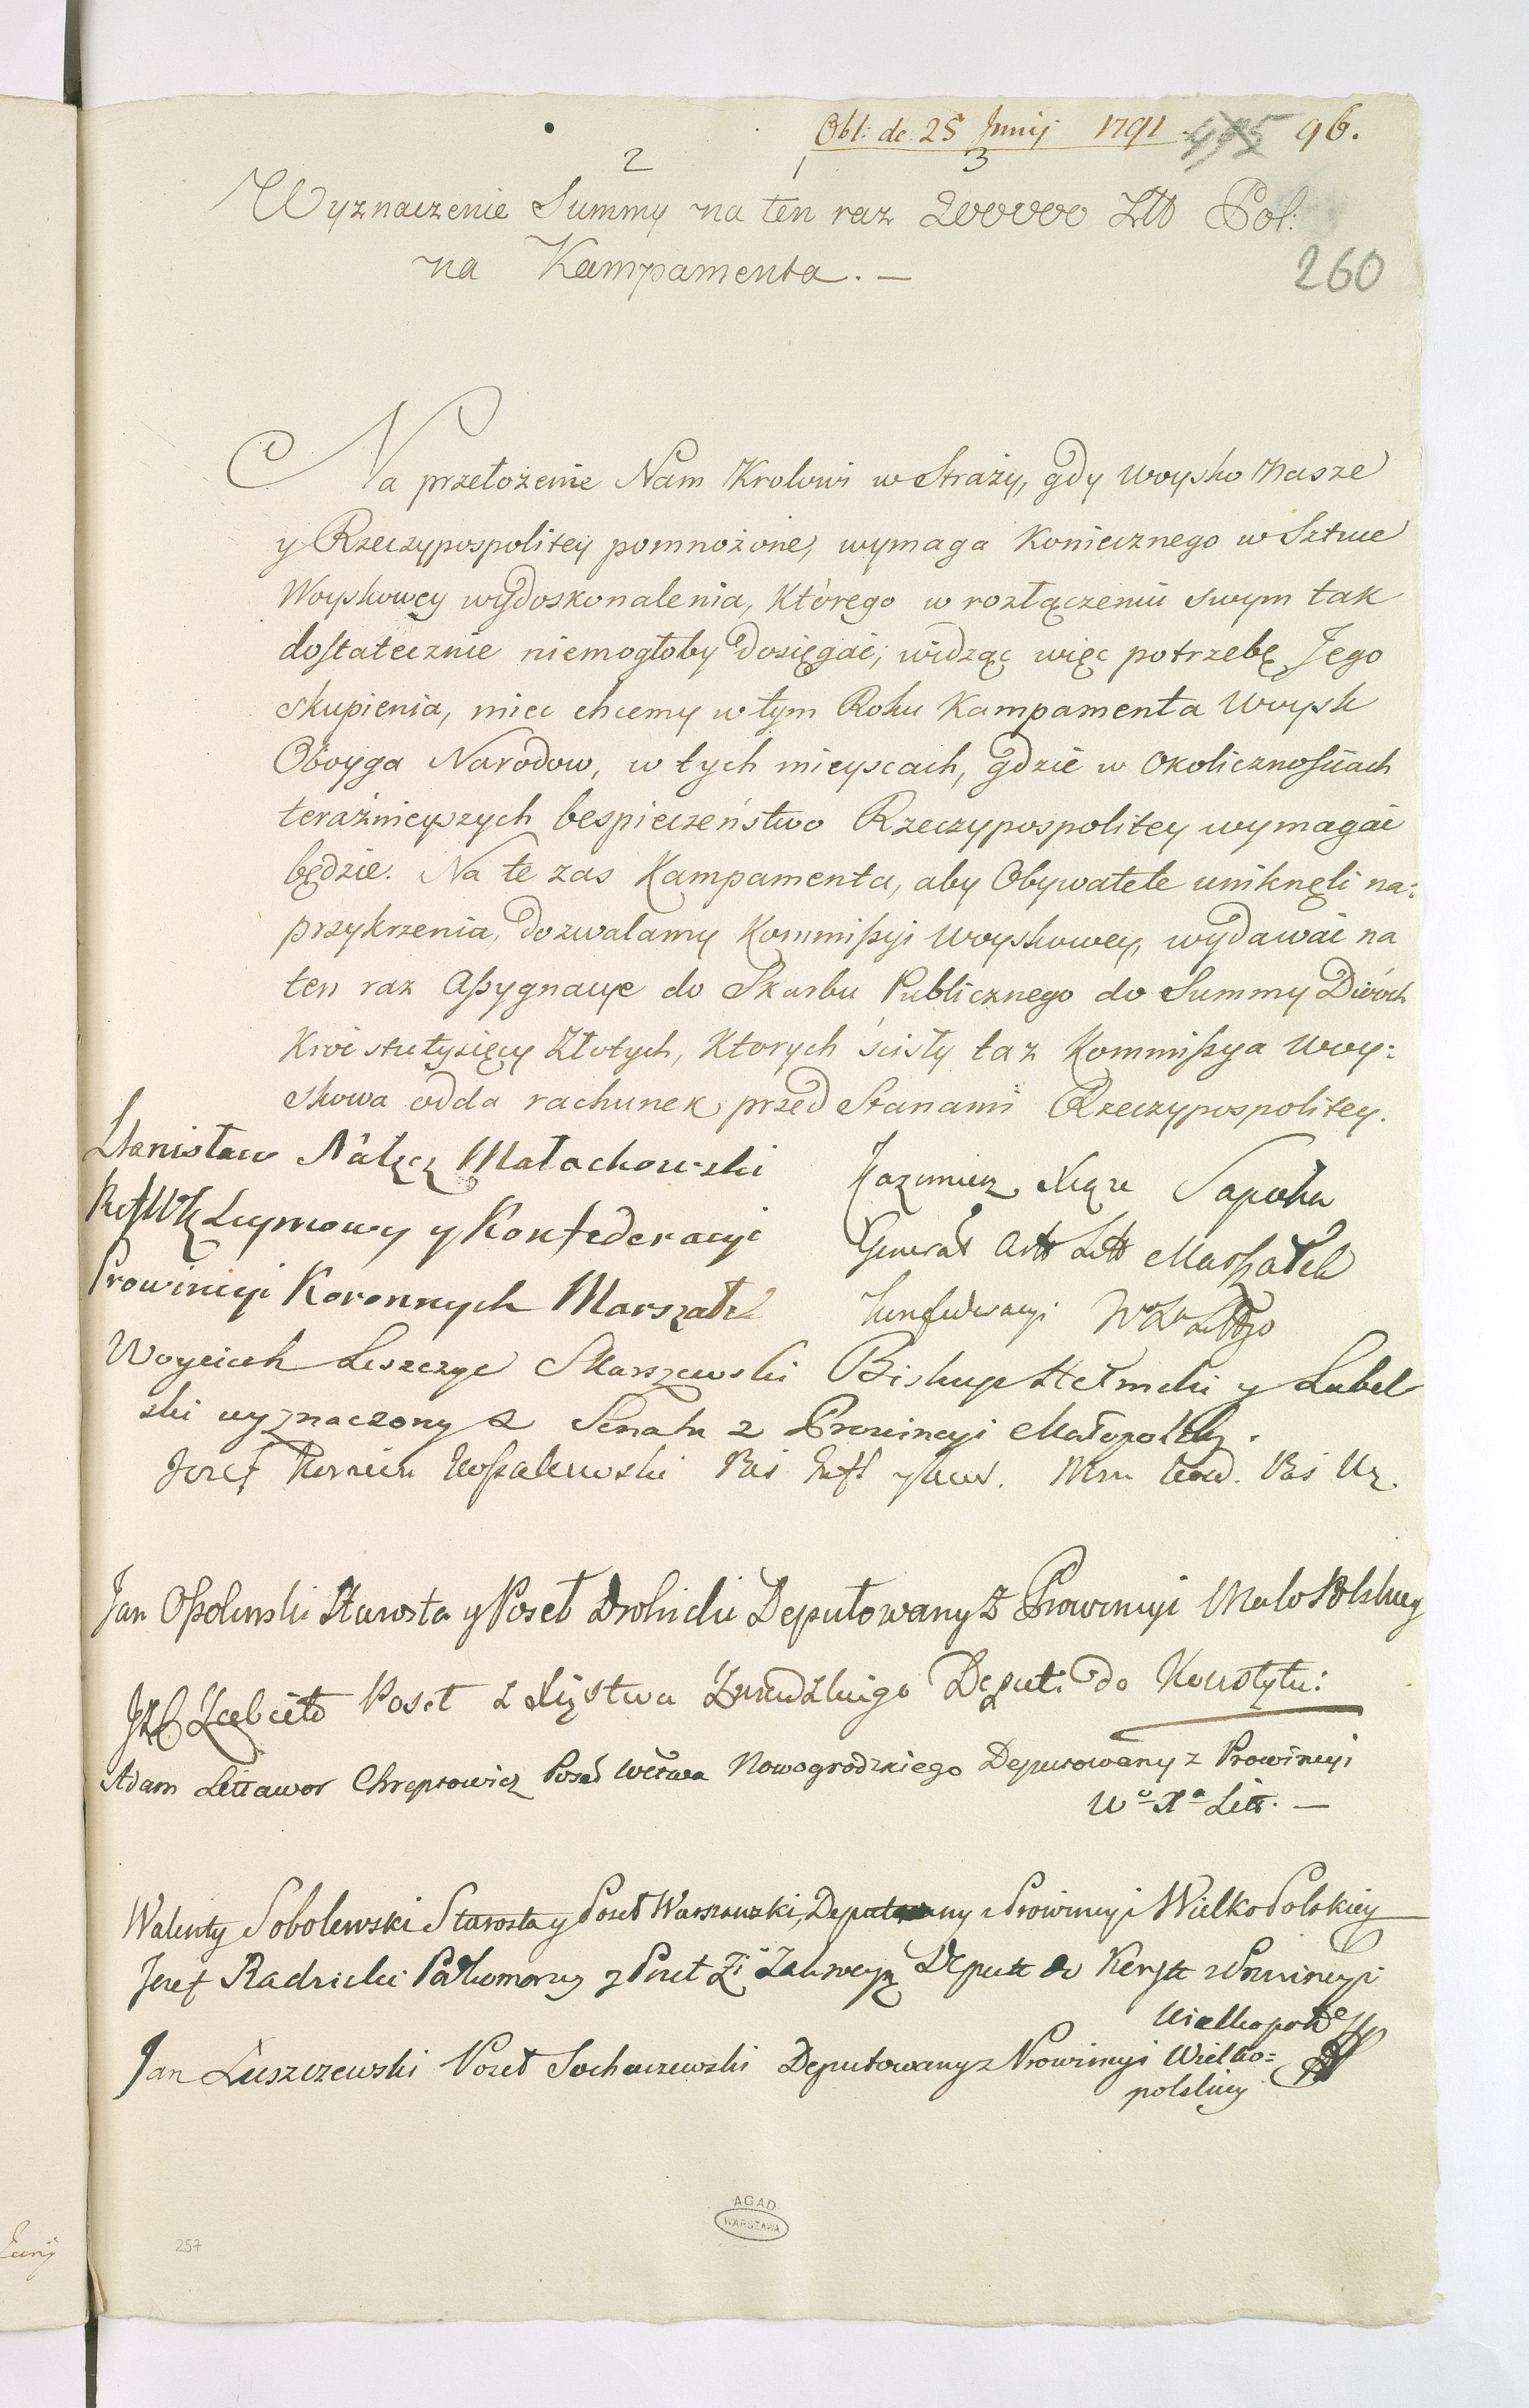 Obl: de. 25 Junij 1791 495 96.
2 1 3
Wyznaczenie Summy na ten raz 200000 Złł Pol:
na Kampamenta. —
260
Na przełożenie Nam Krolowi w Straży, gdy woysko Nasze
y Rzeczypospolitey pomnożone, wymaga Koniecznego w Sztuce
Woyskowey wydoskonalenia, którego w rozłączeniu swym tak
dostatecznie niemogłoby dosięgać; widząc więc potrzebę Jego
skupienia, miec chcemy w tym Roku Kampamenta Woysk
Oboyga Narodow, w tych mieyscach, gdzie w okolicznościach
teraźnieyszych bespieczeństwo Rzeczypospolitey wymagać
będzie. Na te zas Kampamenta, aby Obywatele uniknęli na:
przykrzenia, dozwalamy Kommissyi woyskowey, wydawać na
ten raz Assygnacye do Skarbu Publicznego do Summy Dwóch
Kroć stu tysięcy Złotych, Ktorych ścisły taz Kommissya Woy:
skowa odda rachunek przed Stanami Rzeczypospolitey.
Stanisław Nałęcz Małachowski
Seymowy y Konfederacyi
Prowincyi Koronnych Marszałek
Kazimierz Xiąże Sapieha
Generał Artt Litt Marszałek
Konfederacyi W° X° Littgo
Woyciech Leszczyc Skarszewski Biskup Chełmski y Lubel
ski wyznaczony z Senatu z Prowincyi Małopolsky.
Jozef Korwin Kossakowski
Jan Ossolinski Starosta y Poseł Drohicki Deputowany z Prowincyi Malo Polskiey
Zabiełło Poseł z Xięstwa Zmudzkiego Deput: do Konstytu:
Adam Littawor Chreptowicz Poseł Wctwa Nowogrodzkiego Deputowany z Prowincyi
W° X° Litt. —
Walenty Sobolewski Starosta y Poseł Warszawski, Deputowany z Prowincyi Wielko Polskiey
Jozef Radzicki Podkomorzy y Poseł Zi Zakroczy Deputt do Konstt z Prowincyi
Wielkopol
Jan Łuszczewski Poseł Sochaczewski Deputowany z Prowincyi Wielko=
polskiey
AGAD
WARSZAWA
257